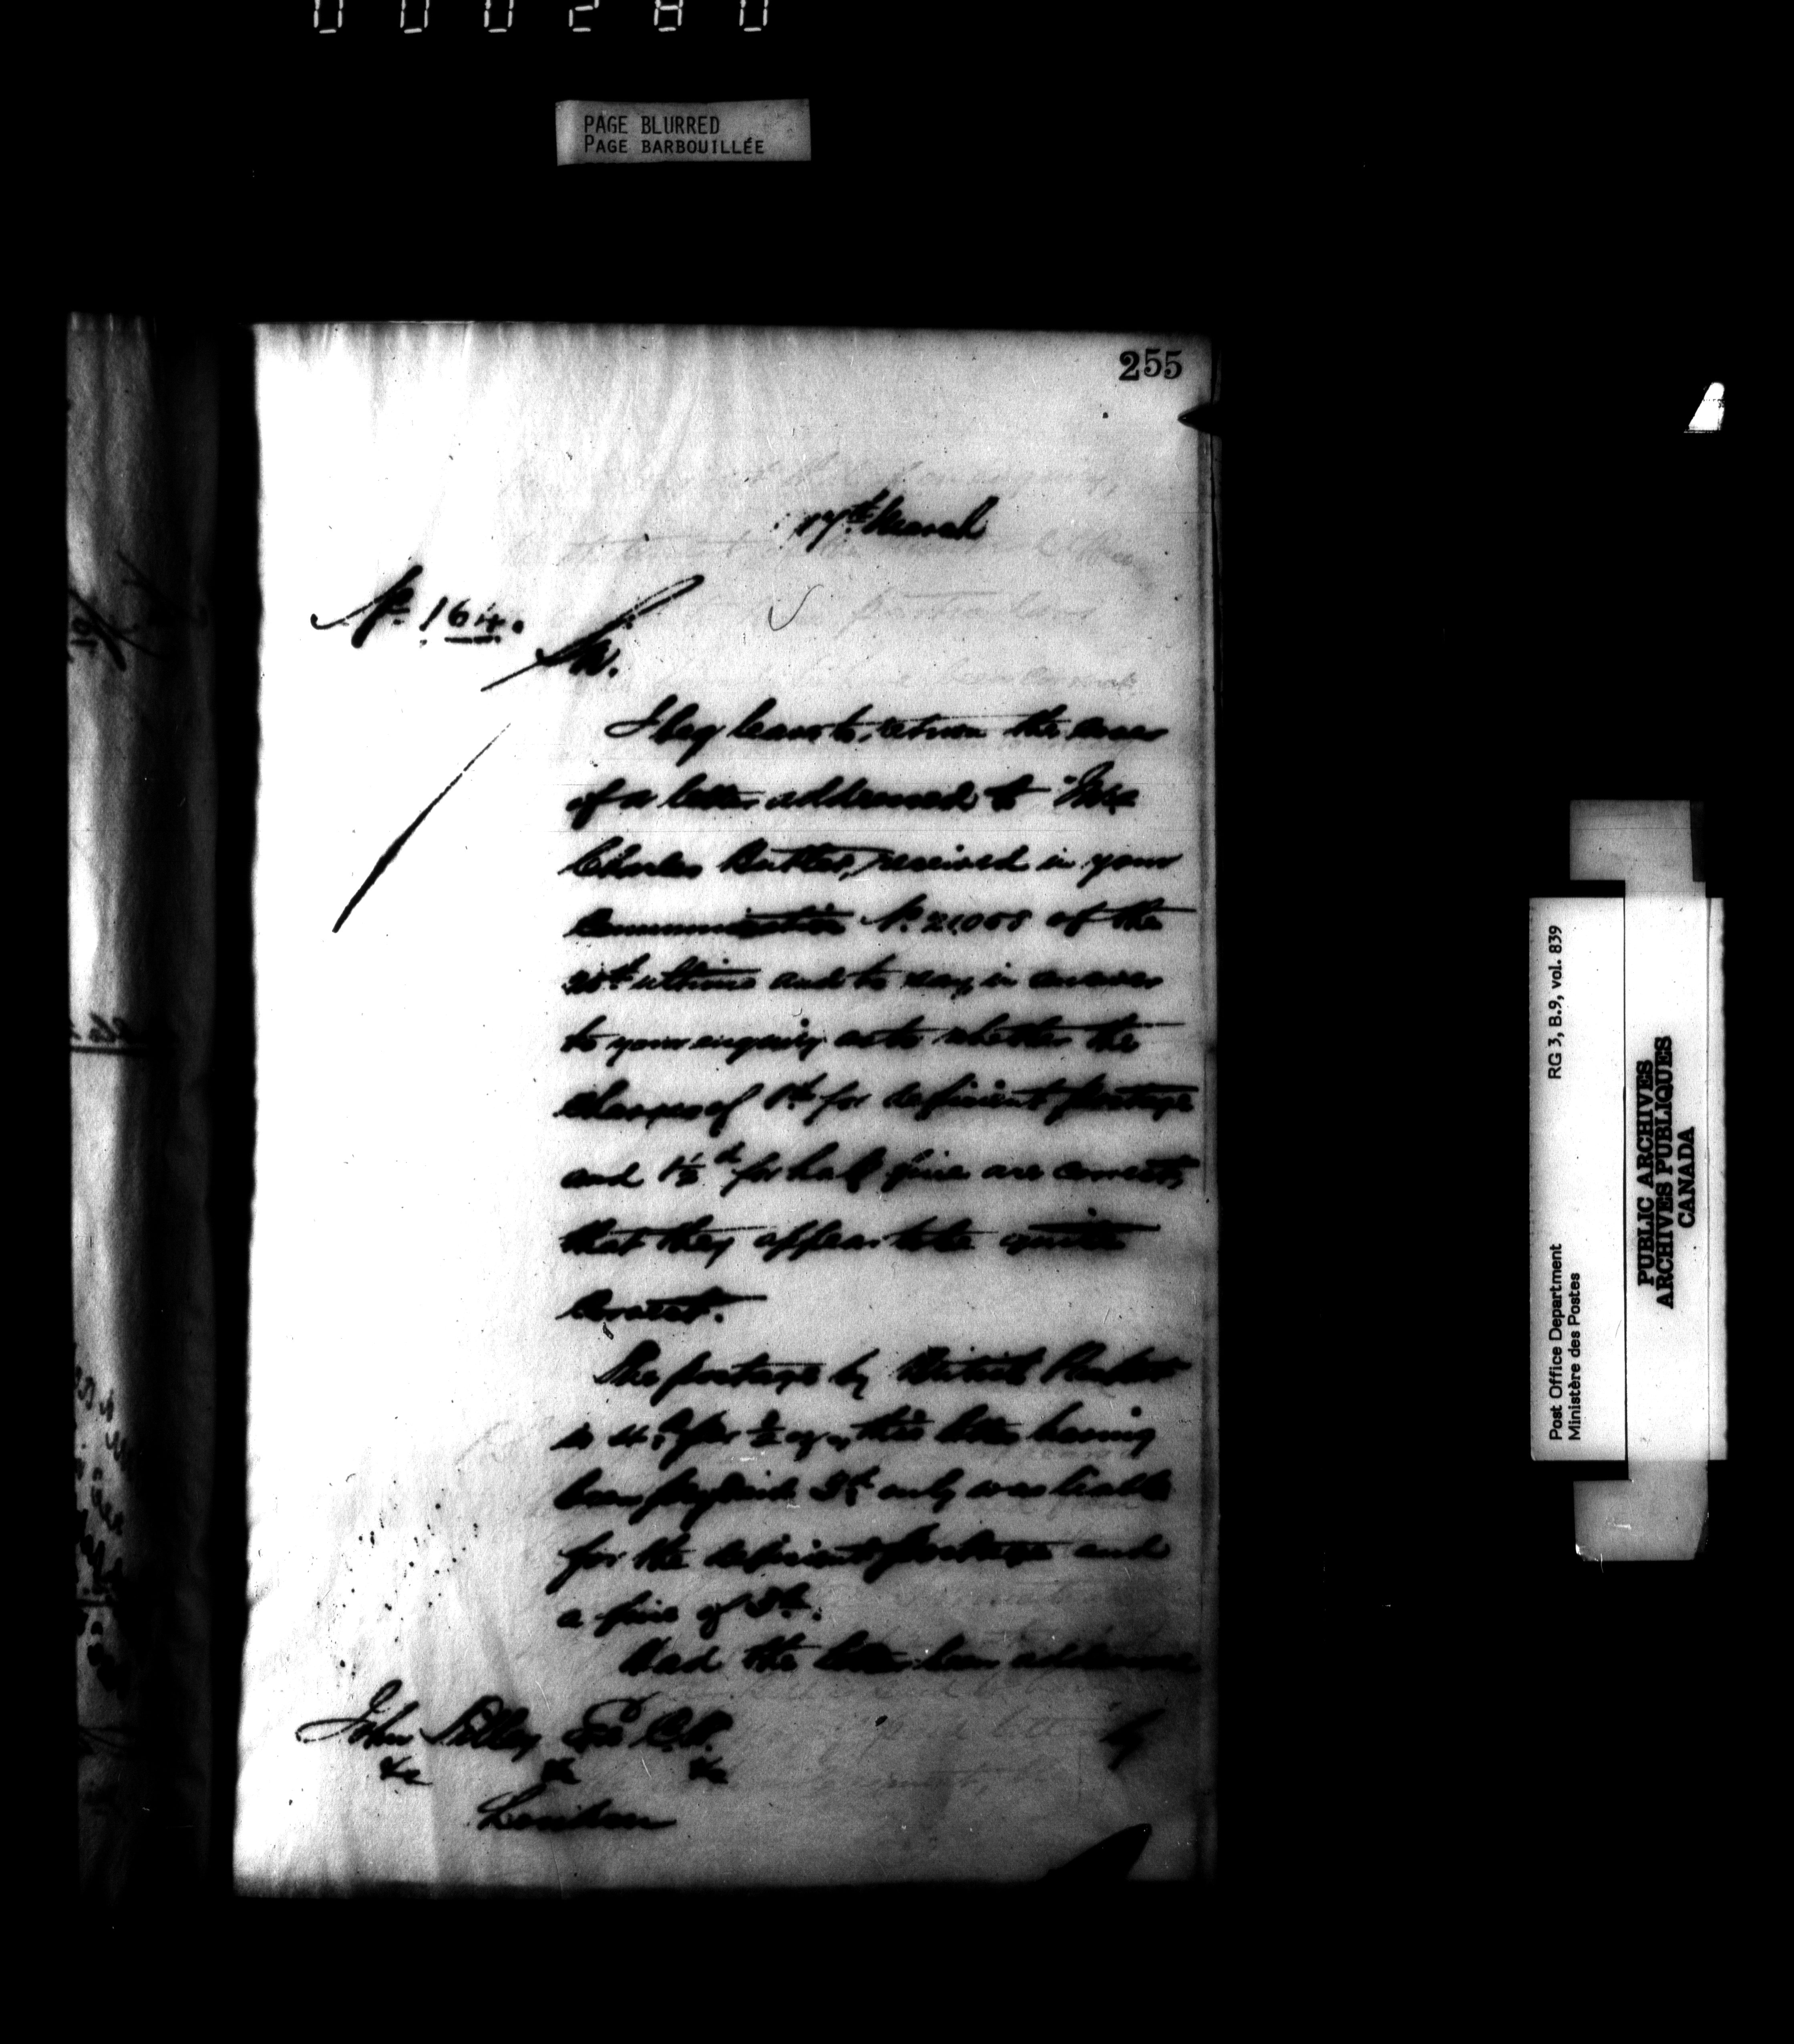 000280
PAGE BLURRED
PAGE BARBOUILLÉE
255
17th March
No. 164.
Sir.
I beg leave to return the cover
of a letter addressed to "Mr
Charles Butler," received in your
Communication No. 21,058 of the
20th ultimo and to say, in answer
to your enquiry as to whether the
charges of 1d for deficient postage
and 1½d for half fine are correct,
that they appear to be quite
Correct.
The postage by British Packet
is 4d per ½ oz, this letter having
been prepaid 3d only was liable
for the deficient postage and
a fine of 3d.
Had the letter been addressed
by
John Tilley Esq C.B.
&c &c &c
London
RG 3, B.9, vol. 839
Post Office Department
Ministère des Postes
PUBLIC ARCHIVES
ARCHIVES PUBLIQUES
CANADA